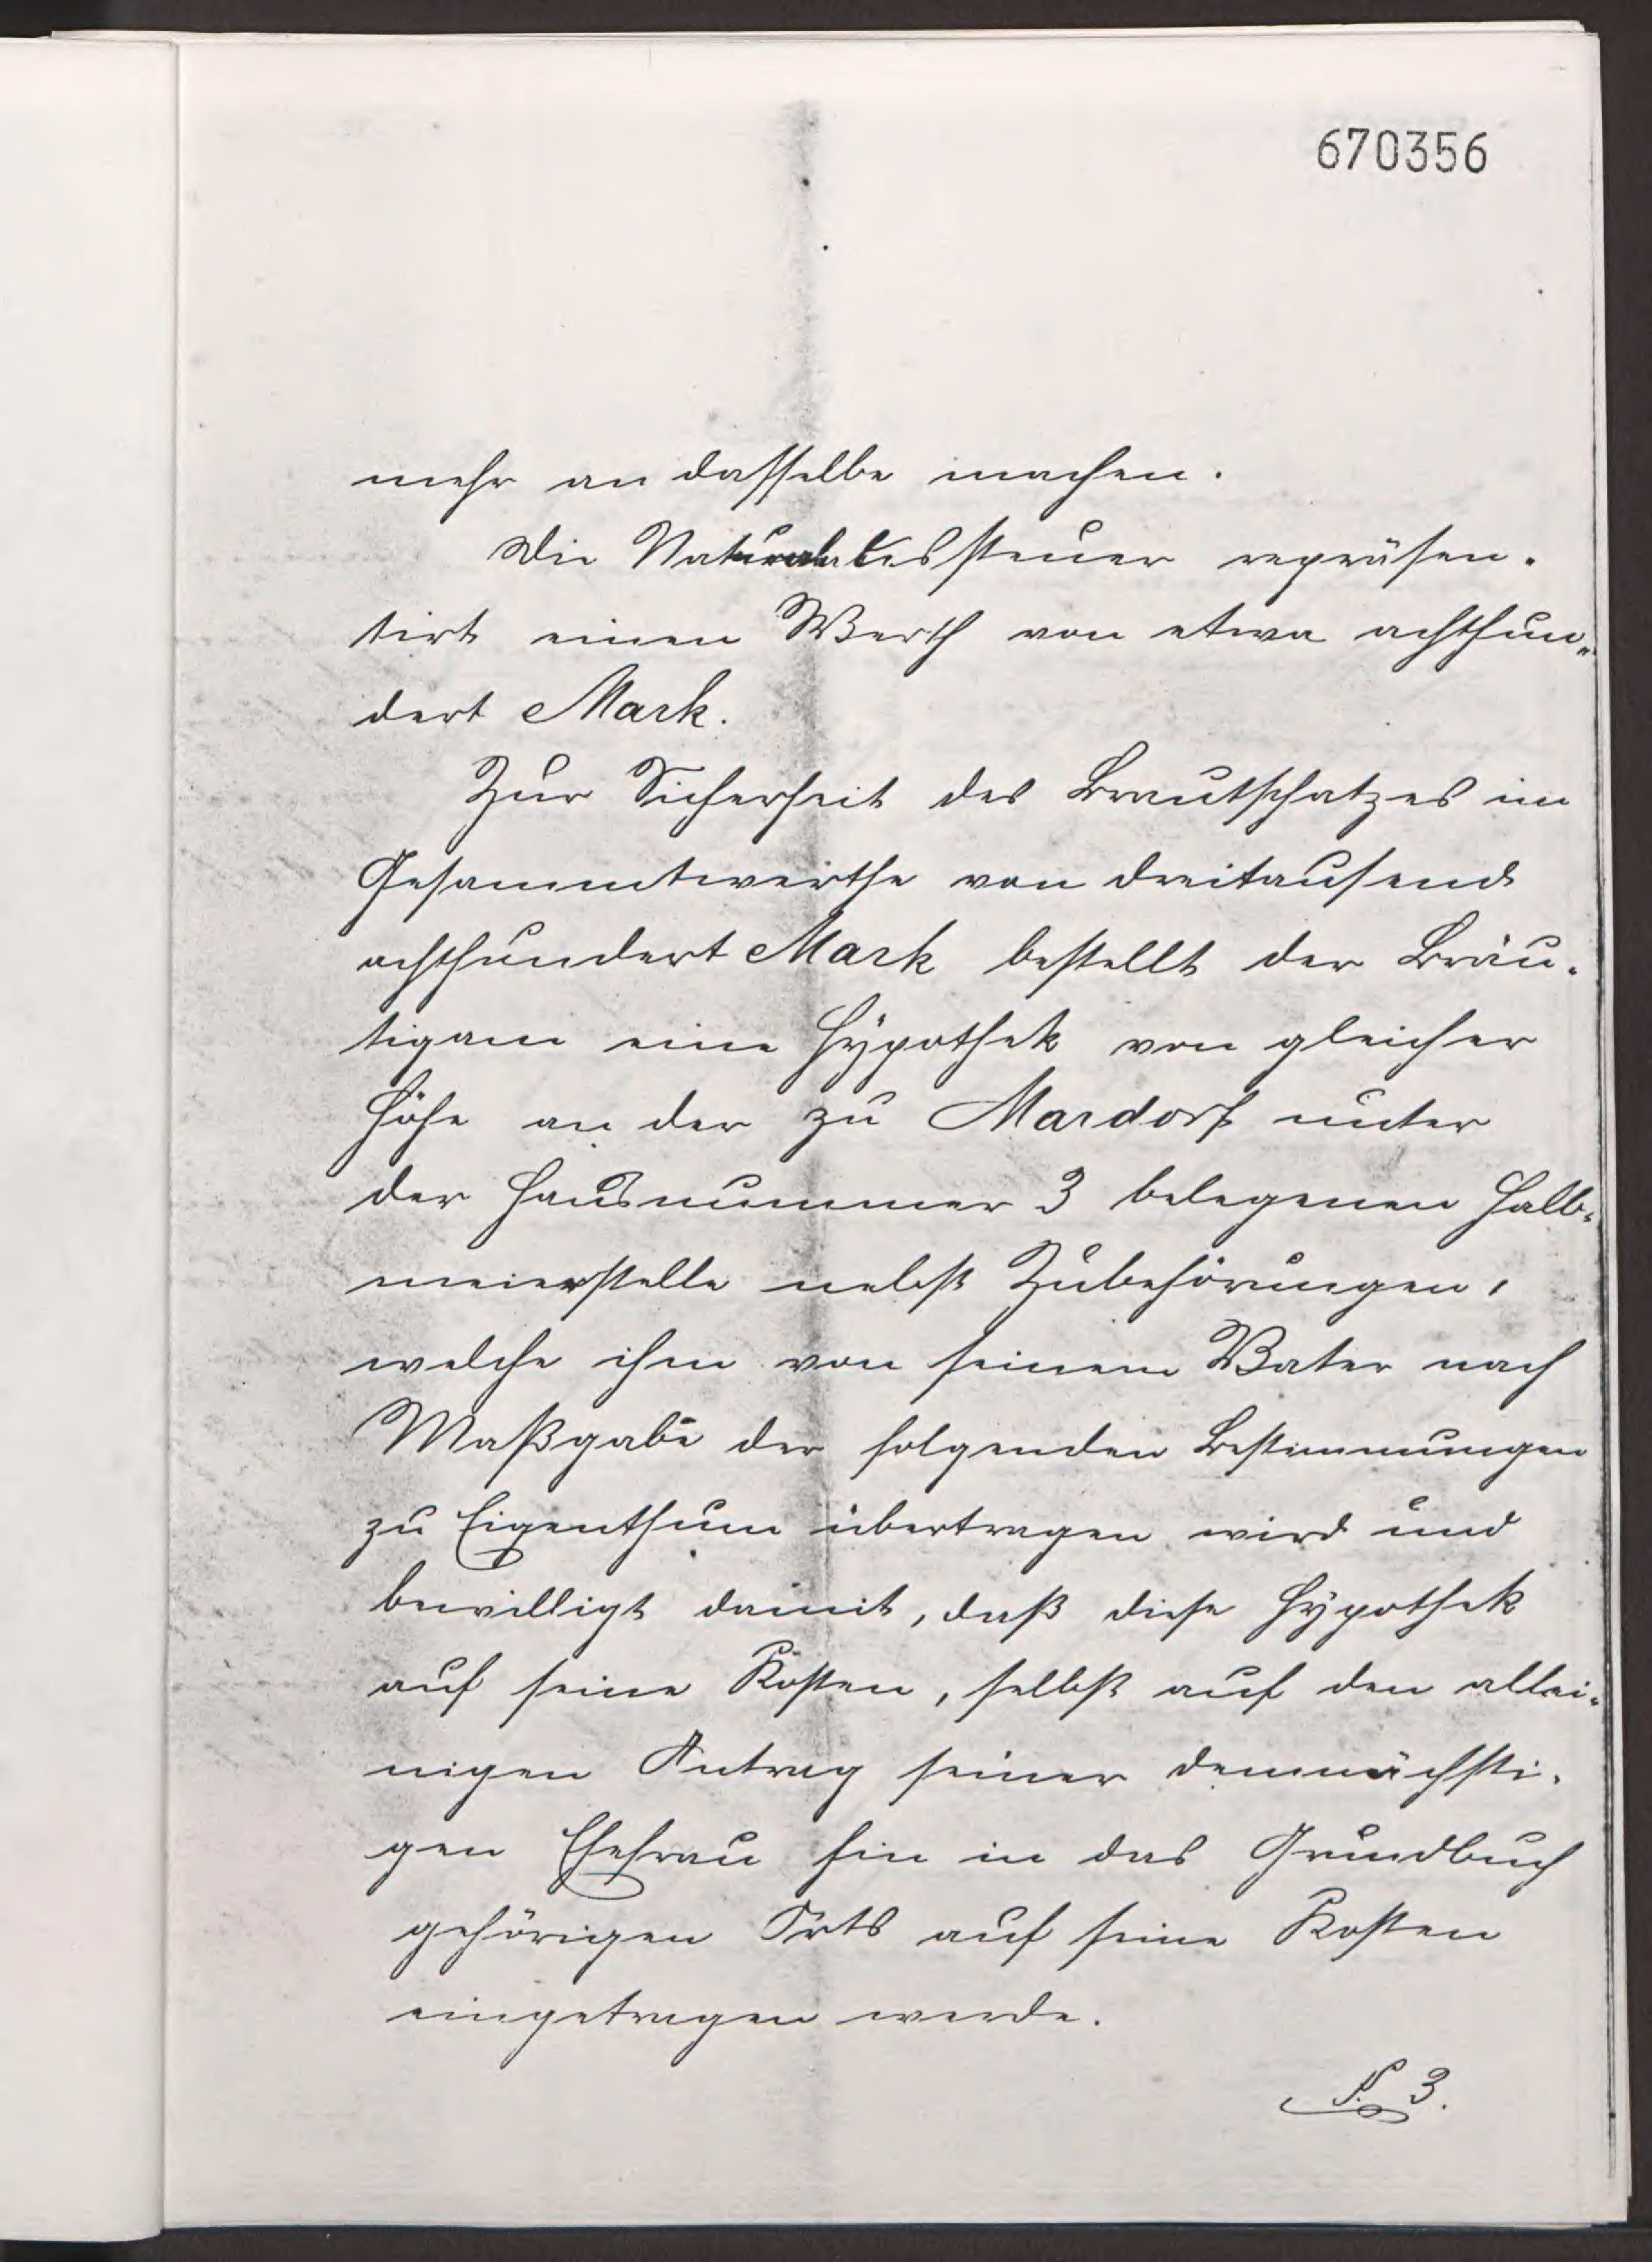 670356
mehr an dasselbe machen.
Die Naturalaussteuer repräsen-
tirt einen Werth von etwa achthun-
dert Mark.
Zur Sicherheit des Brautschatzes im
Gesammtwerthe von dreitausend
achthundert Mark bestellt der Bräu-
tigam eine Hypothek von gleicher
Höhe an der zu Mardorf unter
der Hausnummer 3 belegenen Halb-
meierstelle nebst Zubehörungen,
welche ihm von seinem Vater nach
Maßgabe der folgenden Bestimmungen
zu Eigenthum übertragen wird und
bewilligt damit, daß diese Hypothek
auf seine Kosten, selbst auf den allei-
nigen Antrag seiner demnächsti-
gen Ehefrau hin in das Grundbuch
gehörigen Orts auf seine Kosten
eingetragen werde.
§. 3.